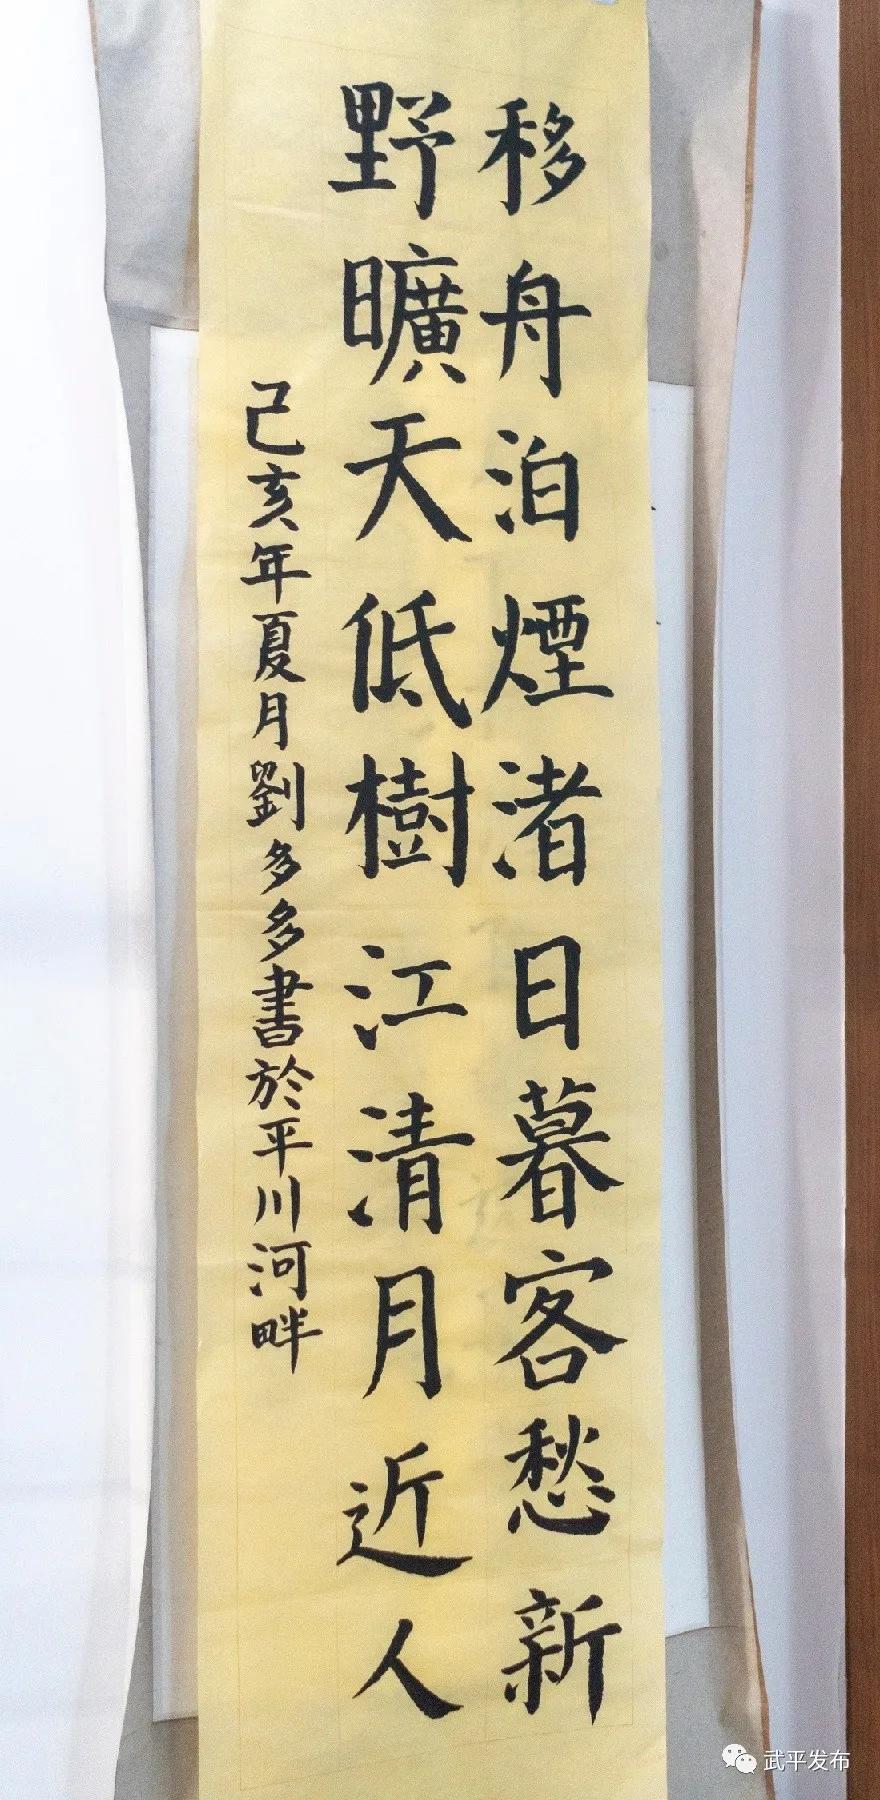 移舟泊煙渚日暮客愁新
野曠天低樹江清月近人
己亥年夏月劉多多書於平川河畔
武平发布